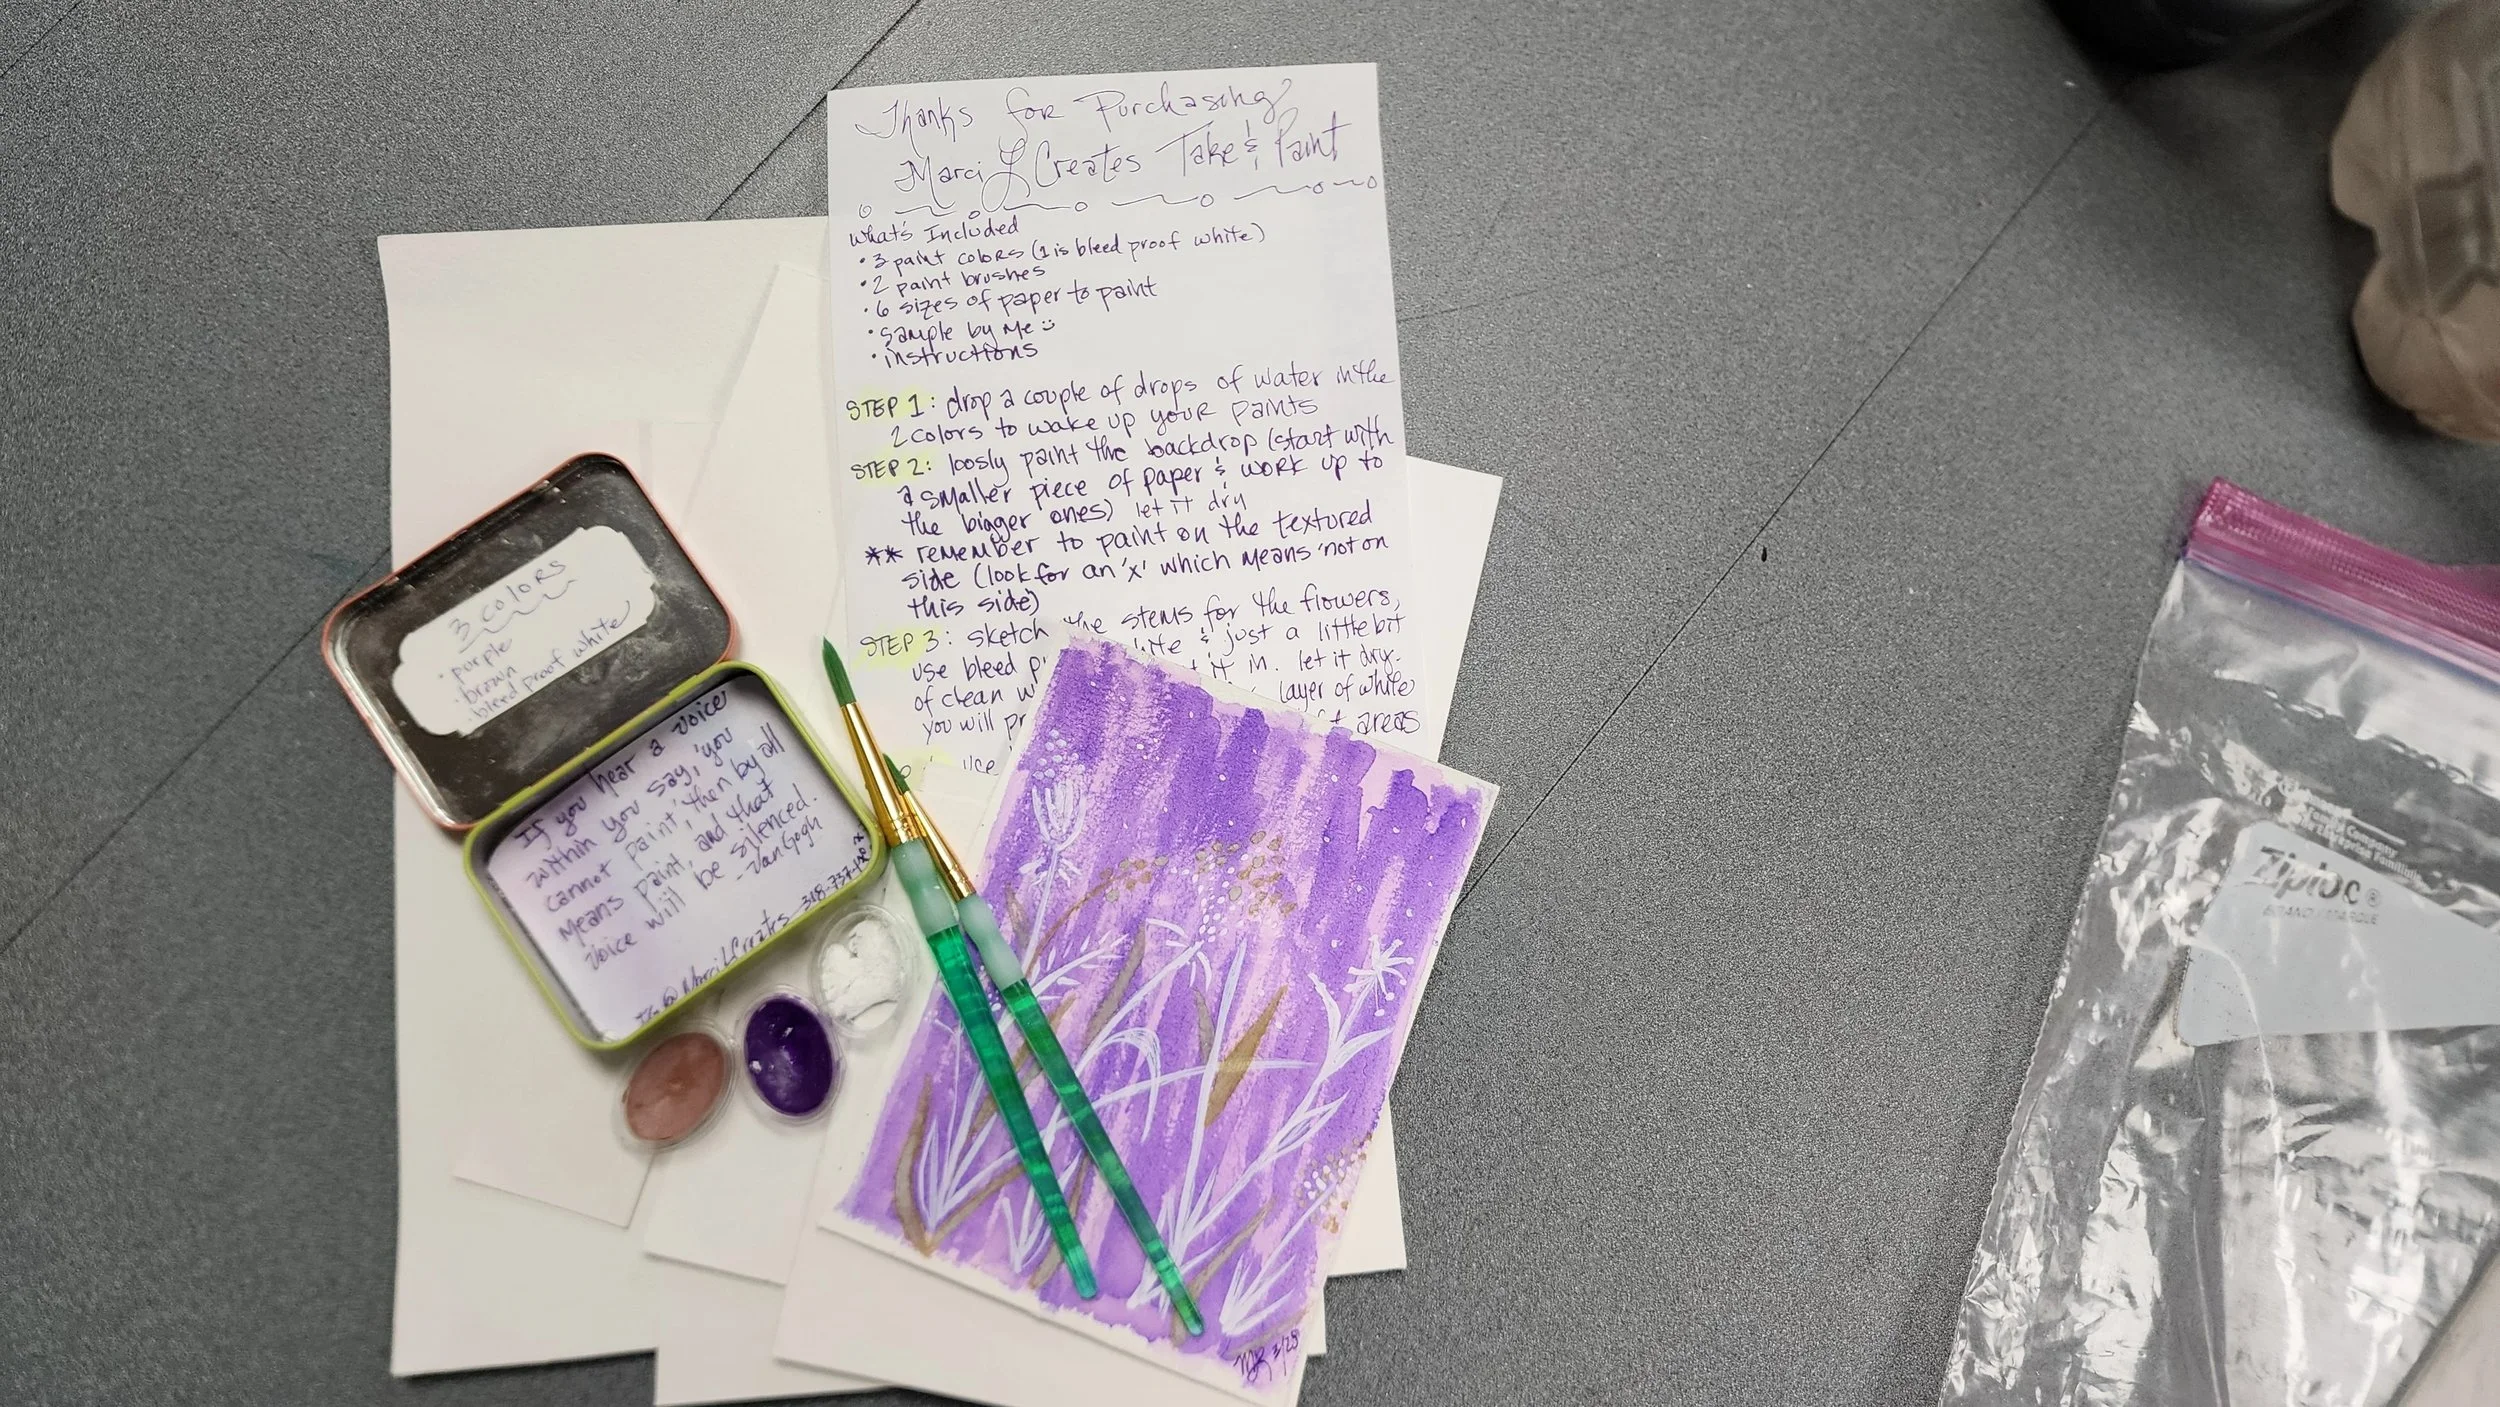 Thanks for Purchasing
Marci L Creates Take & Paint
What's Included
• 3 paint colors (1 is bleed proof white)
• 2 paint brushes
• 6 sizes of paper to paint
• sample by Me
• instructions
STEP 1: drop a couple of drops of water in the
2 colors to wake up your paints
STEP 2: loosly paint the backdrop (start with
a smaller piece of paper & work up to
the bigger ones) let it dry
** remember to paint on the textured
side (look for an 'x' which means 'not on
this side)
STEP 3: sketch the stems for the flowers,
use bleed & just a little bit
of clean it in. let it dry.
you will layer of white
areas
use
3 colors
• purple
• brown
• bleed proof white
If you hear a voice
within you say, 'you
cannot paint,' then by all
means paint, and that
voice will be silenced.
- Van Gogh
IG @ Marci L Creates
MR 3/28
Ziploc®